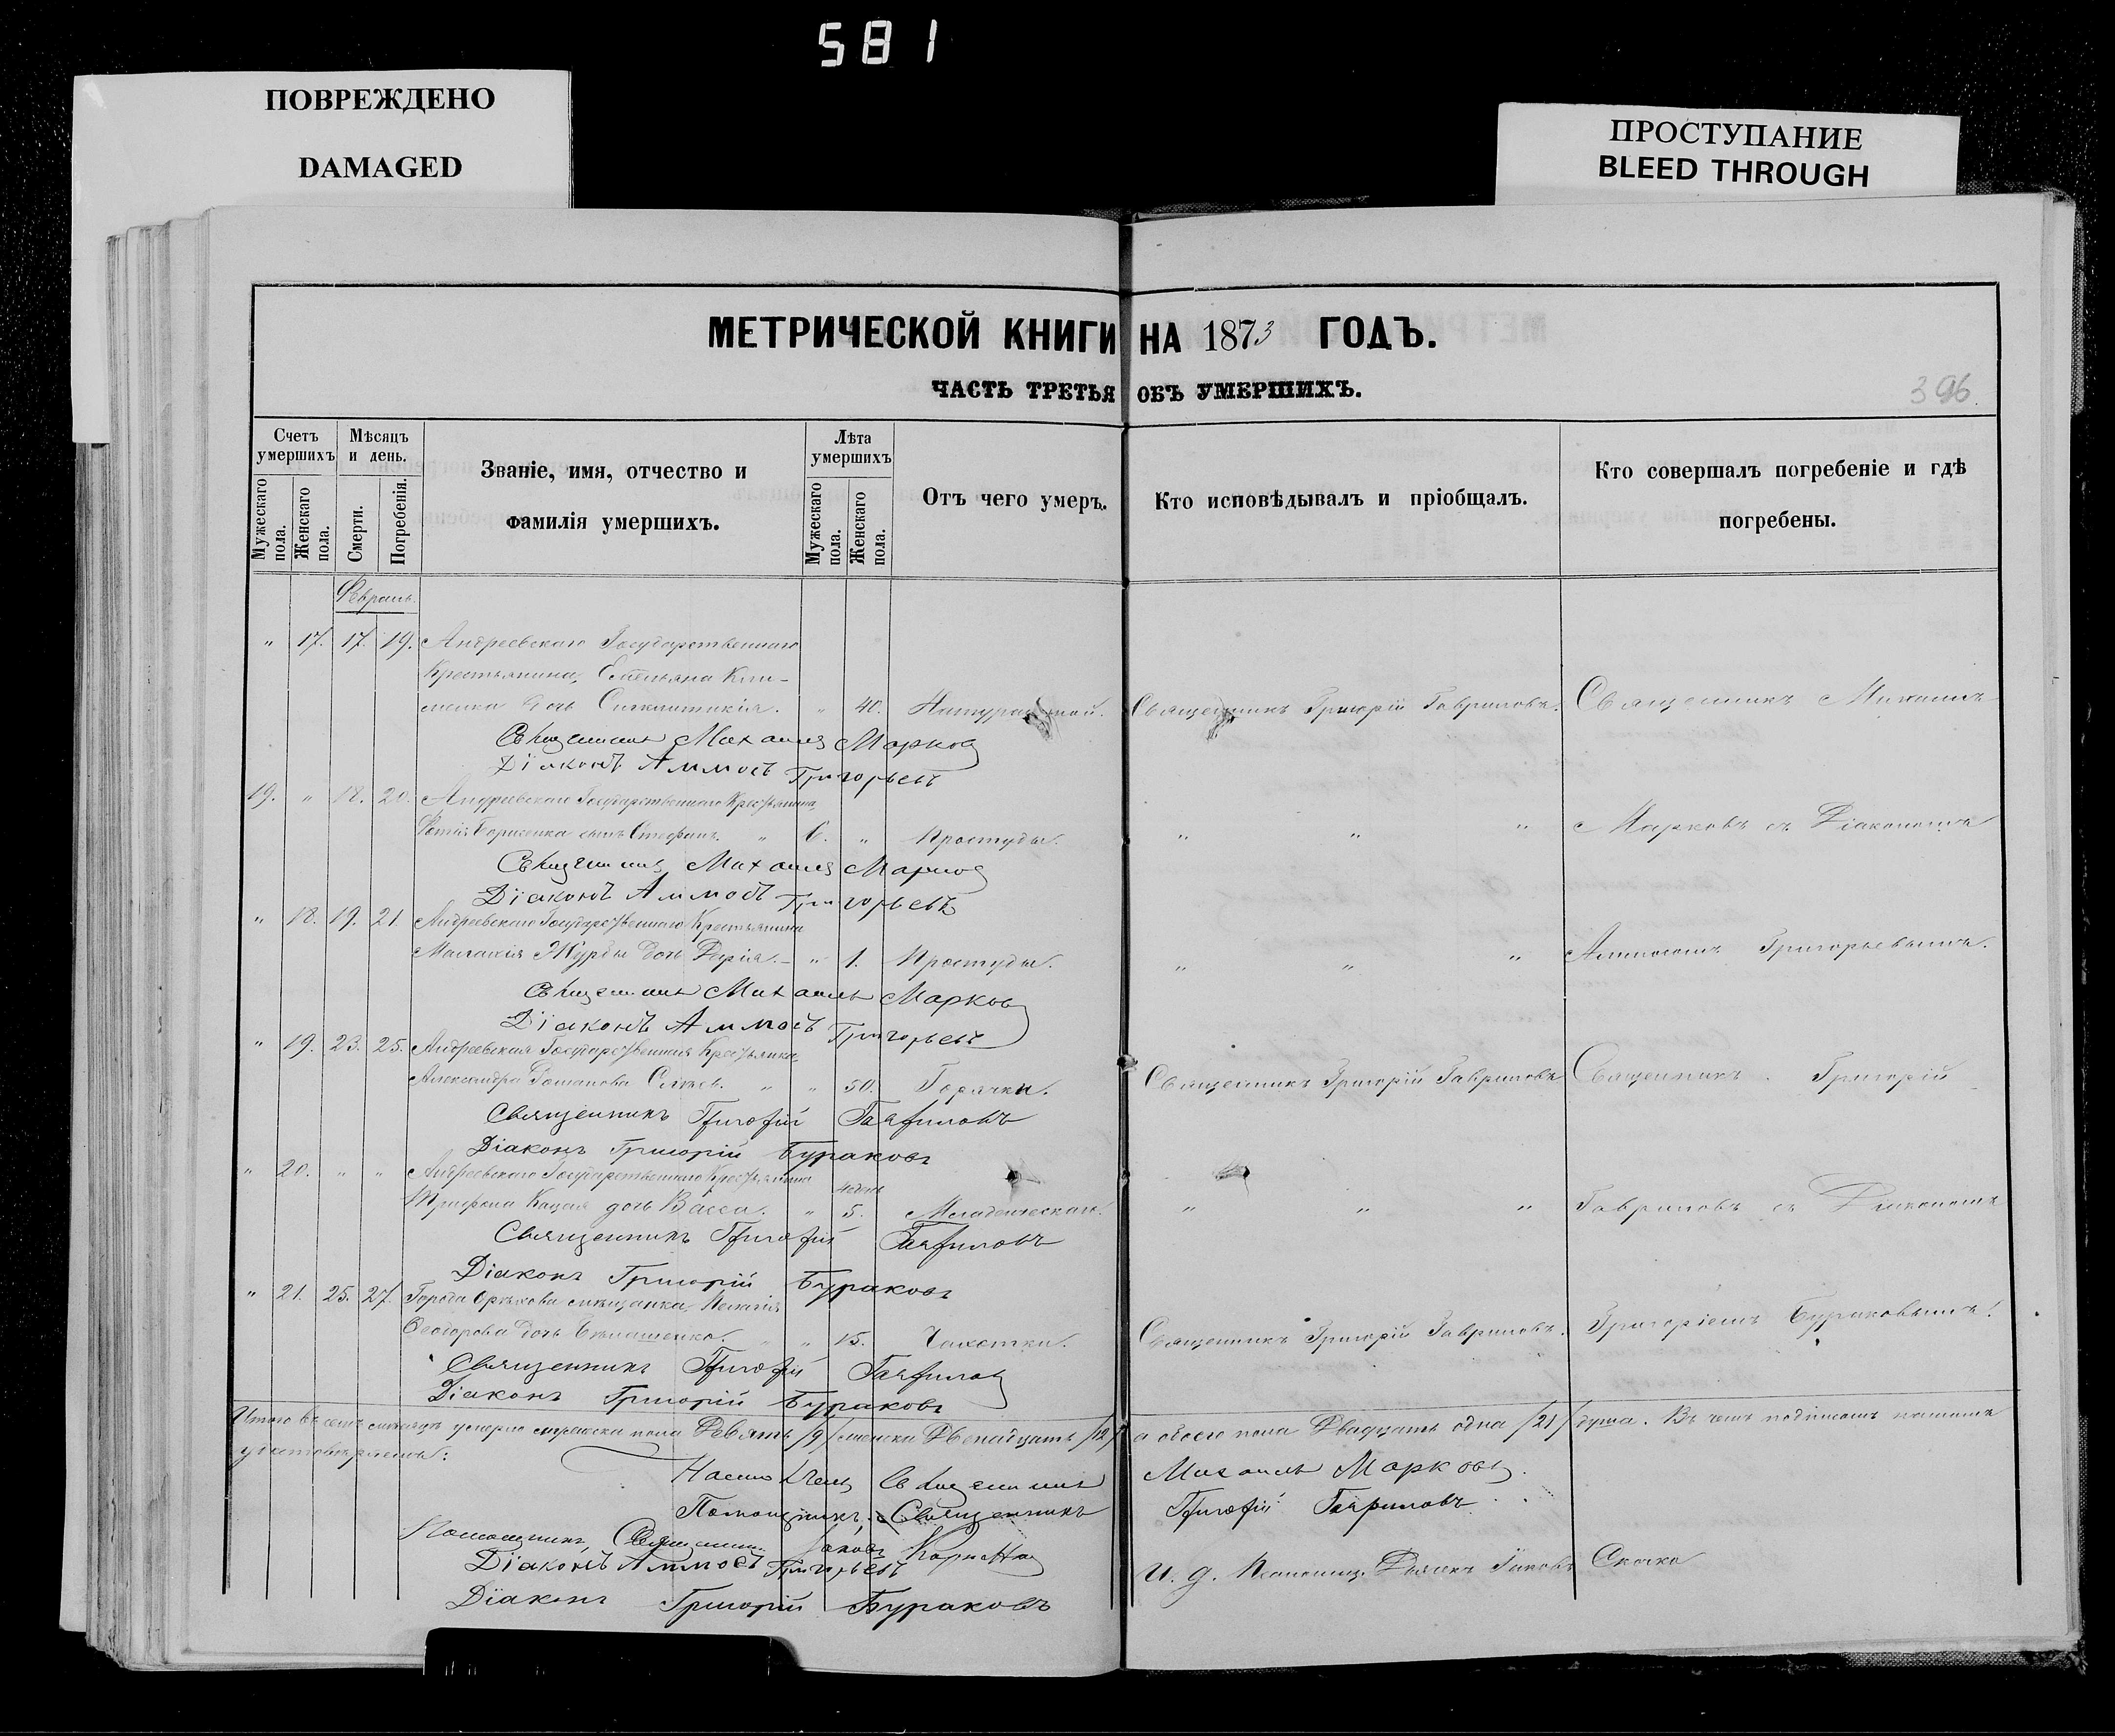 581
ПОВРЕЖДЕНО
DAMAGED
ПРОСТУПАНИЕ
BLEED THROUGH
МЕТРИЧЕСКОЙ КНИГИ НА 1873 ГОДЪ.
ЧАСТЬ ТРЕТЬЯ ОБЪ УМЕРШИХЪ.
396
Счетъ умершихъ
Мужескаго пола.
Женскаго пола.
Мѣсяцъ и день.
Смерти.
Погребенія.
Званіе, имя, отчество и
фамилія умершихъ.
Лѣта умершихъ
Мужескаго пола.
Женскаго пола.
Отъ чего умеръ.
Кто исповѣдывалъ и пріобщалъ.
Кто совершалъ погребеніе и гдѣ
погребены.
Февраль.
" 17. 17. 19. Андреевскаго Государственнаго
Крестьянина, Емельяна Кли-
менка дочь Синклитикія. " 40. Натуральной. Священникъ Григорій Гавриловъ. Священникъ Михаилъ
Священникъ Михаилъ Марковъ
Діаконъ Аммосъ Григорьевъ
19. " 18. 20. Андреевскаго Государственнаго Крестьянина,
Фотія Борисенка сынъ Стефанъ. " 6. " Простуды. " " " Марковъ съ Діакономъ
Священникъ Михаилъ Марковъ
Діаконъ Аммосъ Григорьевъ
" 18. 19. 21. Андреевскаго Государственнаго Крестьянина
Малахія Журбы дочь Дарія. " 1. Простуды. " " " Аммосомъ Григорьевымъ.
Священникъ Михаилъ Марковъ
Діаконъ Аммосъ Григорьевъ
" 19. 23. 25. Андреевская Государственная Крестьянка
Александра " " 50. Горячки. Священникъ Григорій Гавриловъ Священникъ Григорій
Священникъ Григорій Гавриловъ
Діаконъ Григорій Бураковъ
" 20. " " Андреевскаго Государственнаго Крестьянина
Трифона Кацая дочь Васса. " 5. Младенческаго. " " " Гавриловъ съ Діакономъ
Священникъ Григорій Гавриловъ
Діаконъ Григорій Бураковъ
" 21. 25. 27. Города Орѣхова мѣщанка, Пелагія
Ѳеодорова дочь " " 15. Чахотки. Священникъ Григорій Гавриловъ. Григоріемъ Бураковымъ.
Священникъ Григорій Гавриловъ
Діаконъ Григорій Бураковъ
Итого въ семъ мѣсяцѣ умерло мужеска пола Девять /9/ женска Двенадцать /12/ а обоего пола Двадцать одна /21/ душа. Въ чемъ подписомъ нашимъ
удостовѣряемъ:
Настоятель Священникъ Михаилъ Марковъ.
Помощникъ, Священникъ Григорій Гавриловъ
Помощникъ, Священникъ Іаковъ
Діаконъ Аммосъ Григорьевъ И. д. Дьячекъ Іаковъ Скочко
Діаконъ Григорій Бураковъ